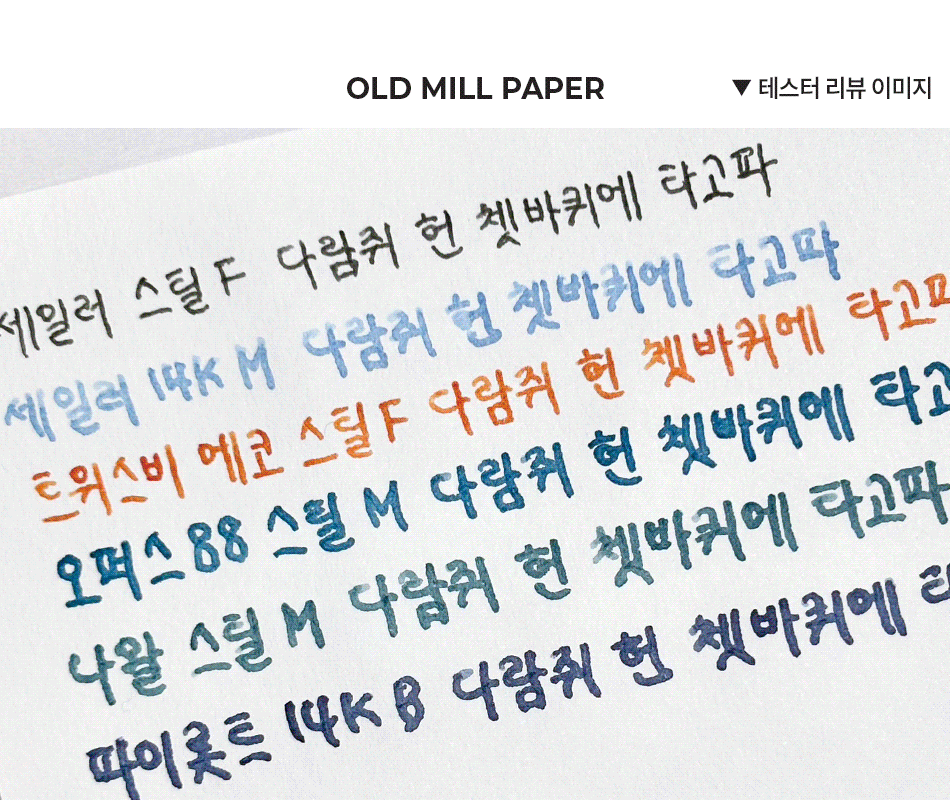 OLD MILL PAPER
▼ 테스터 리뷰 이미지
세일러 스틸 F 다람쥐 헌 쳇바퀴에 타고파
세일러 14K M 다람쥐 헌 쳇바퀴에 타고파
트위스비 에코 스틸 F 다람쥐 헌 쳇바퀴에 타고파
오퍼스 88 스틸 M 다람쥐 헌 쳇바퀴에 타고
나왈 스틸 M 다람쥐 헌 쳇바퀴에 타고파
파이롯트 14K B 다람쥐 헌 쳇바퀴에